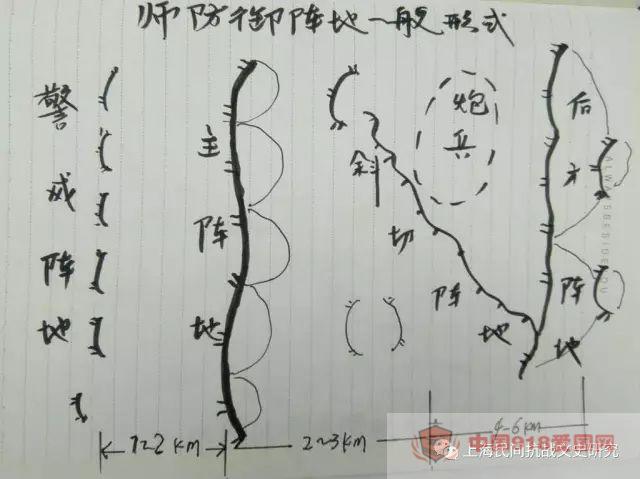 师防御阵地一般形式
警戒阵地
主阵地
斜切阵地
炮兵
后方阵地
ALWAYSBESIDEYOU
1~2 KM
2~3KM
4-6KM
中国918爱国网
上海民间抗战文史研究